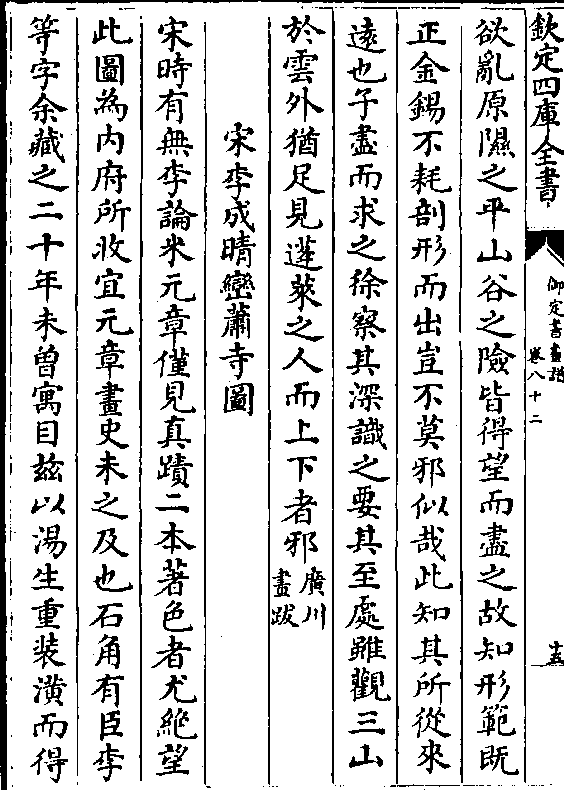 欽定四庫全書
御定書畫譜
卷八十二
十五
欲亂原隰之平山谷之險皆得望而盡之故知形範既
正金錫不耗剖形而出豈不莫邪似哉此知其所從來
遠也子盡而求之徐察其深識之要其至處雖觀三山
於雲外猶足見蓬萊之人而上下者邪廣川畫跋
宋李成晴巒蕭寺圖
宋時有無李論米元章僅見真蹟二本著色者尤絶望
此圖為内府所收宜元章畫史未之及也石角有臣李
等字余藏之二十年未曾寓目兹以湯生重装潢而得